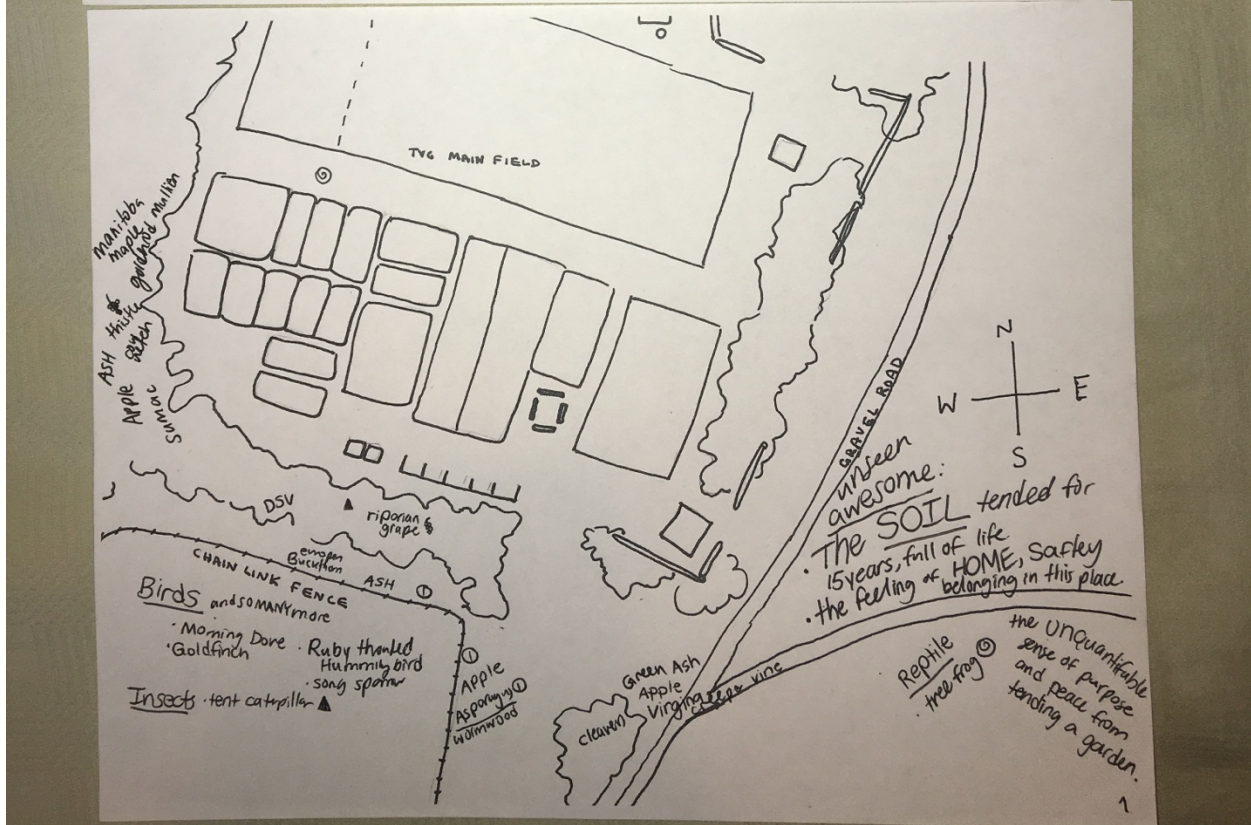 TVG MAIN FIELD
manitoba
maple
goldenrod mullien
ASH thistle
Apple
vetch
sumac
DSV
riparian
grape
europen
Buckthorn
ASH
CHAIN LINK FENCE
Birds and so MANY more
· Morning Dove
· Goldfinch
· Ruby thoated
Hummingbird
· song sparrow
Insects · tent catterpillar
Apple
Asparagus
wormwood
Green Ash
Apple
Virginia creeper vine
cleaven
GRAVEL ROAD
N
W
E
S
unseen
awesome:
· The SOIL tended for
15 years, full of life
· the feeling of HOME, Safley
belonging in this place.
Reptile
· tree frog
the unquantifable
sense of purpose
and peace from
tending a garden.
1